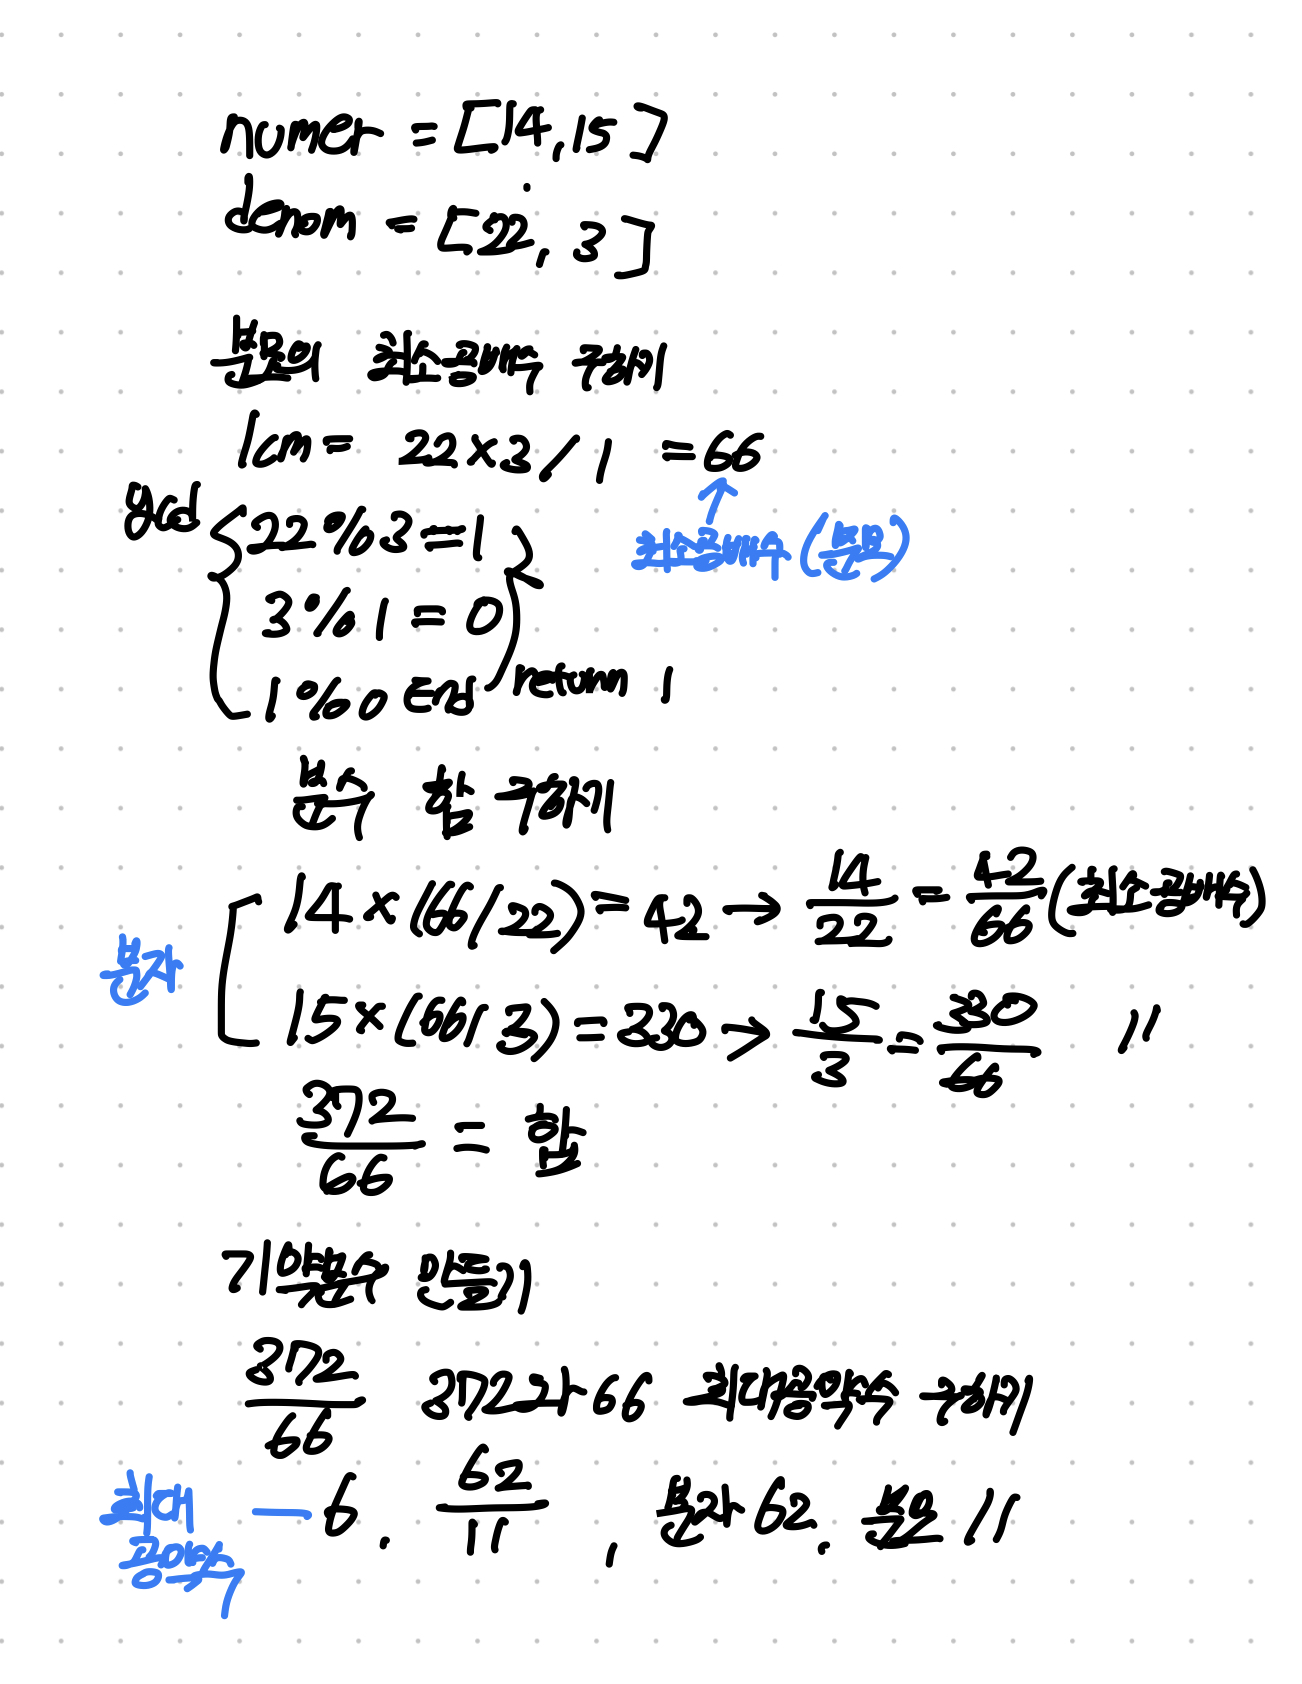 numer = [14, 15]
denom = [22, 3]
분모의 최소공배수 구하기
lcm = 22 x 3 / 1 = 66
최소공배수 (분모)
gcd
22 % 3 = 1
3 % 1 = 0
1 % 0 End return 1
분수 합 구하기
분자
14 x (66/22) = 42 → 14/22 = 42/66 (최소공배수)
15 x (66/3) = 330 → 15/3 = 330/66 〃
372/66 = 합
기약분수 만들기
372/66 372와 66 최대공약수 구하기
최대공약수 — 6. 62/11, 분자 62. 분모 11